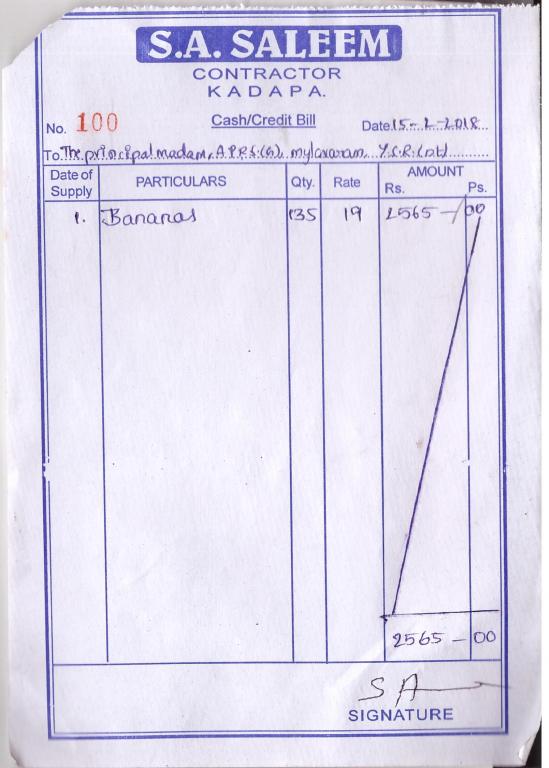 S.A. SALEEM
CONTRACTOR
KADAPA.
No. 100 Cash/Credit Bill Date 15-2-2018
To. The principal madam, A.P.R.S.(G), mylavaram, Y.S.R.(Dt)
Date of Supply PARTICULARS Qty. Rate AMOUNT Rs. Ps.
1. Bananas 135 19 2565-/00
2565-00
SA
SIGNATURE